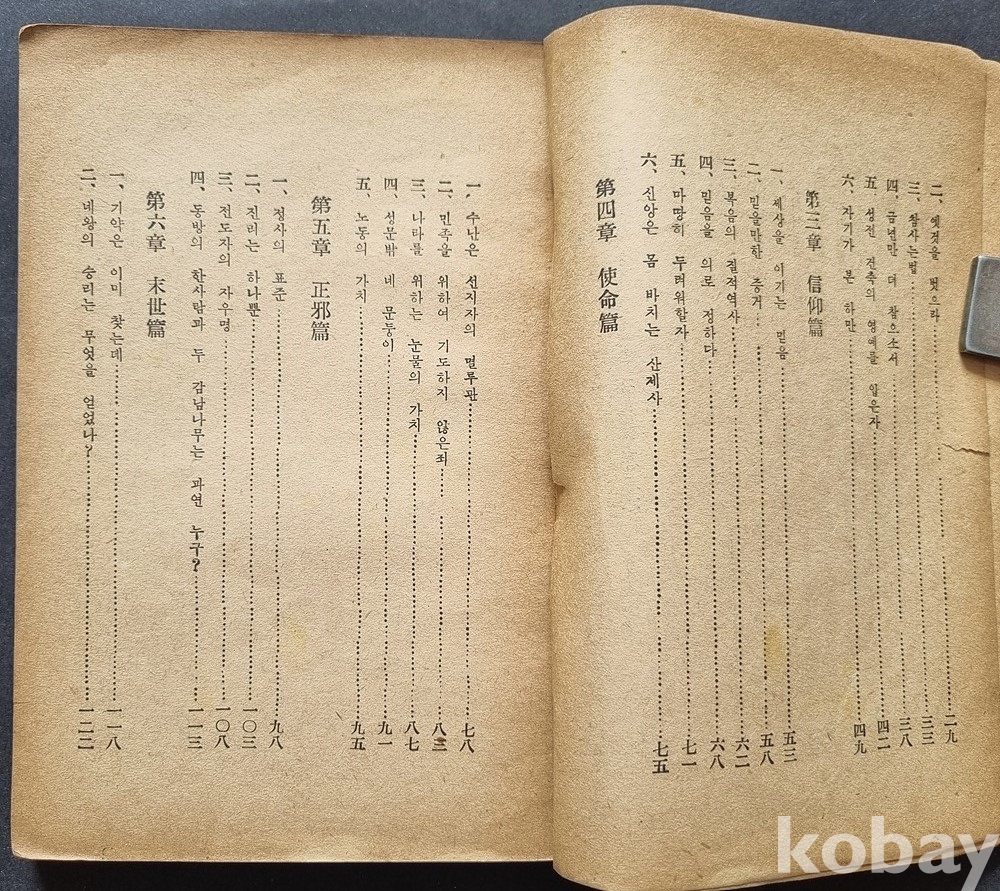 二、 옛것을 벗으라 二九
三、 참사는법 三三
四、 금년만 더 참으소서 三八
五、 성전 건축의 영예를 입은자 四二
六、 자기가 본 하만 四九
第三章 信仰篇
一、 세상을 이기는 믿음 五三
二、 믿을만한 증거 五八
三、 복음의 결적역사 六二
四、 믿음을 의로 정하다 六八
五、 마땅히 두려워할자 七一
六、 신앙은 몸 바치는 산제사 七五
第四章 使命篇
一、 수난은 선지자의 멸루관 七八
二、 민족을 위하여 기도하지 않은죄 八三
三、 나라를 위하는 눈물의 가치 八七
四、 성문밖 네 문둥이 九一
五、 노동의 가치 九五
第五章 正邪篇
一、 정사의 표준 九八
二、 진리는 하나뿐 一〇三
三、 전도자의 자우명 一〇八
四、 동방의 한사람과 두 감남나무는 과연 누구? 一一三
第六章 末世篇
一、 기약은 이미 찾는데 一一八
二、 네왕의 승리는 무엇을 얻었나? 一二二
kobay